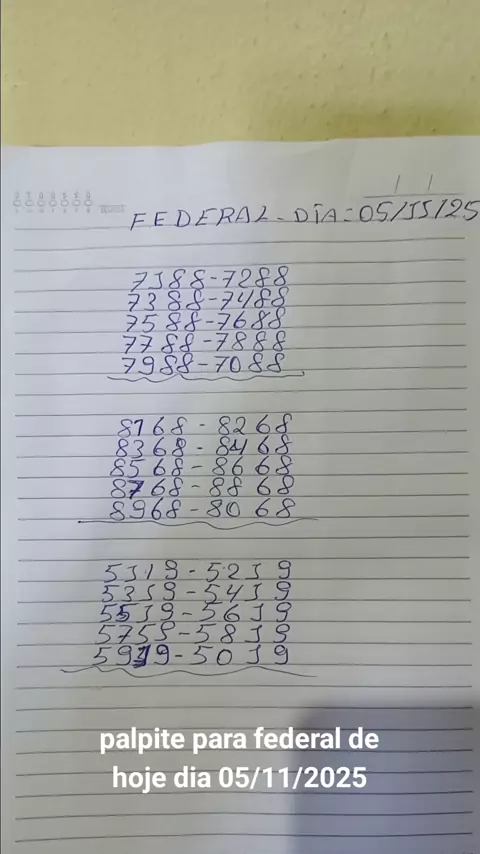 FEDERAL - DIA = 05/11/25
7188-7288
7388-7488
7588-7688
7788-7888
7988-7088
8168-8268
8368-8468
8568-8668
8768-8868
8968-8068
5119-5219
5319-5419
5519-5619
5759-5819
5919-5019
palpite para federal de
hoje dia 05/11/2025